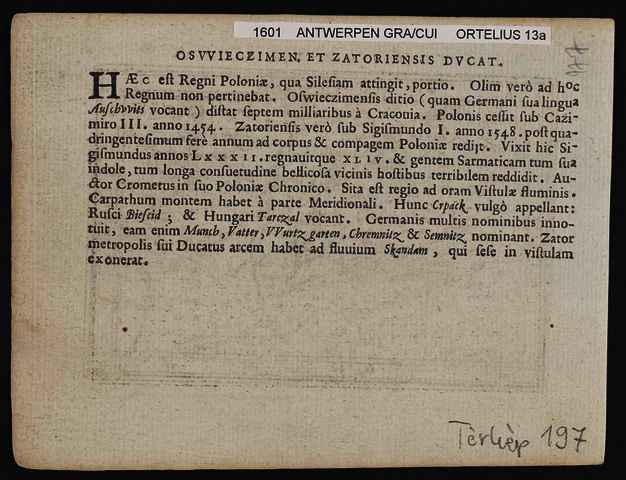 1601 ANTWERPEN GRA/CUI ORTELIUS 13a
197
OSVVIECZIMEN. ET ZATORIENSIS DVCAT.
HÆC est Regni Poloniæ, qua Silesiam attingit, portio. Olim verò ad hoc
Regnum non pertinebat. Oswieczimensis ditio (quam Germani sua lingua
Auschvvits vocant) distat septem milliaribus à Cracouia. Polonis cessit sub Cazi-
miro III. anno 1454. Zatoriensis verò sub Sigismundo I. anno 1548. post qua-
dringentesimum ferè annum ad corpus & compagem Poloniæ redijt. Vixit hic Si-
gismundus annos LXXXII. regnauitque XLIV. & gentem Sarmaticam tum sua
indole, tum longa consuetudine bellicosa vicinis hostibus terribilem reddidit. Au-
ctor Crometus in suo Poloniæ Chronico. Sita est regio ad oram Vistulæ fluminis.
Carpathum montem habet à parte Meridionali. Hunc Crpack vulgò appellant:
Rusci Biescid; & Hungari Tarczal vocant. Germanis multis nominibus inno-
tuit, eam enim Munch, Vatter, VVurtzgarten, Chremnitz & Semnitz nominant. Zator
metropolis sui Ducatus arcem habet ad fluuium Skandam, qui sese in vistulam
exonerat.
197